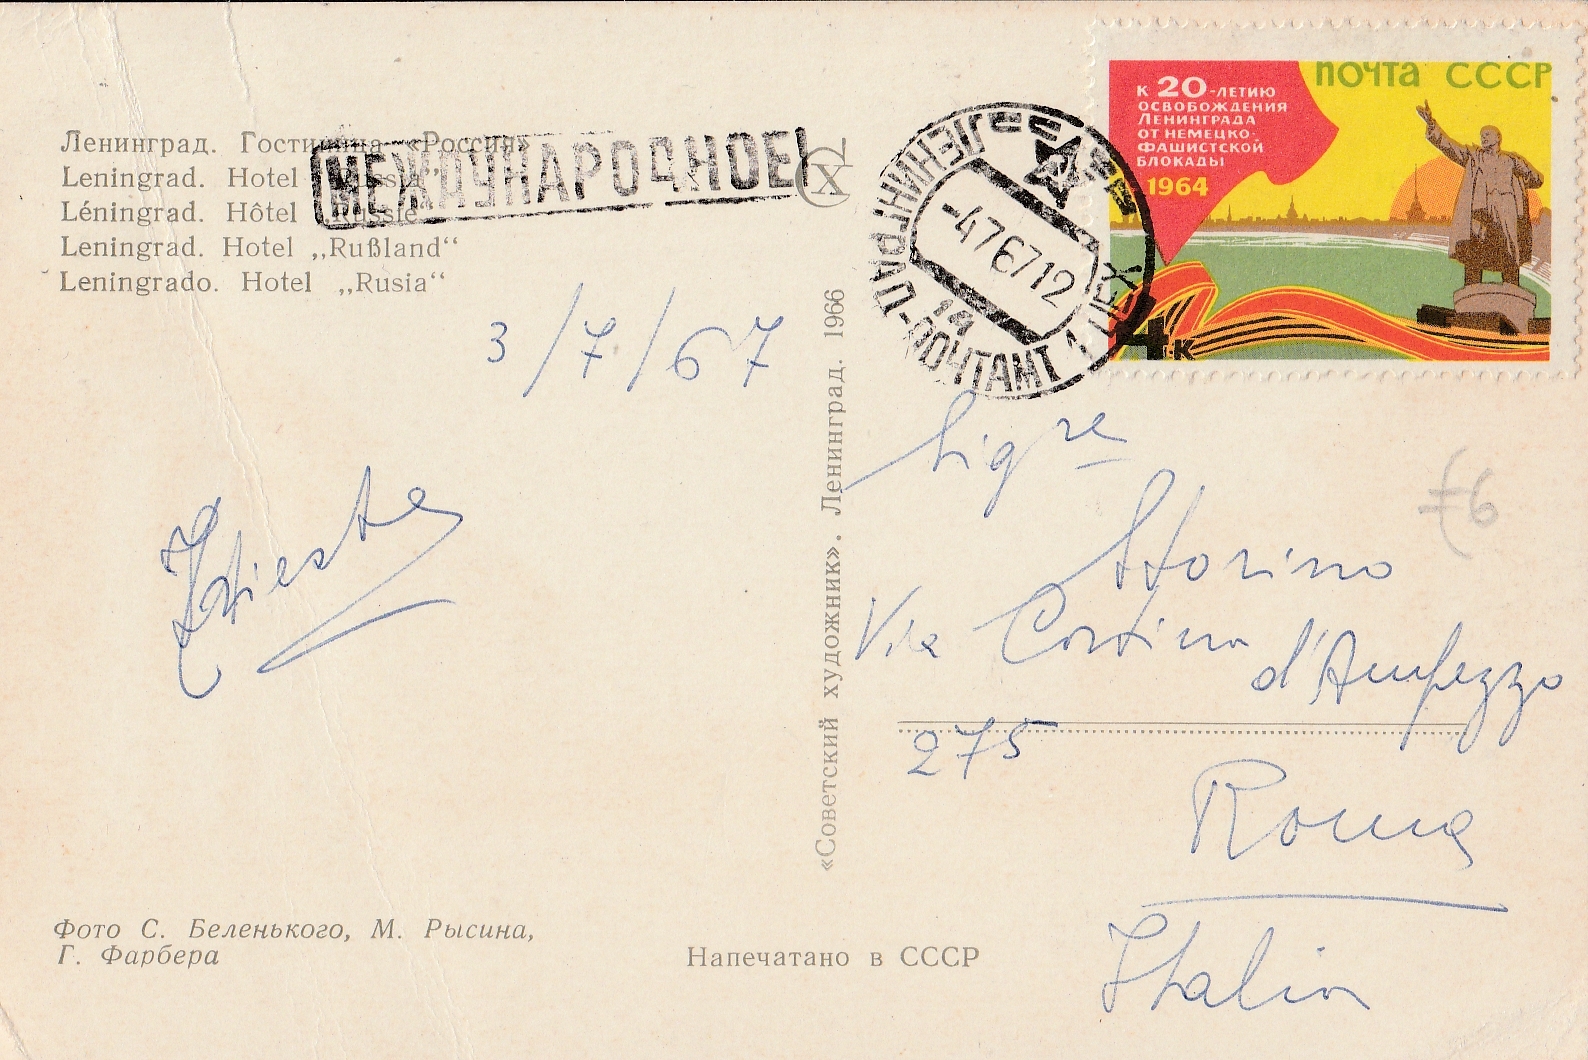 Ленинград. Гостиница «Россия»
Leningrad. Hotel „Russia“
Léningrad. Hôtel „Russie“
Leningrad. Hotel „Rußland“
Leningrado. Hotel „Rusia“
МЕЖДУНАРОДНОЕ
ПОЧТА СССР
К 20-ЛЕТИЮ
ОСВОБОЖДЕНИЯ
ЛЕНИНГРАДА
ОТ НЕМЕЦКО-
ФАШИСТСКОЙ
БЛОКАДЫ
1964
4 К
ЛЕНИНГРАД-ПОЧТАМТ 1
-476712
3/7/67
Sig.re
Storino
Via Cortina d'Ampezzo
275
Roma
Italia
£6
«Советский художник». Ленинград. 1966
Фото С. Беленького, М. Рысина,
Г. Фарбера
Напечатано в СССР